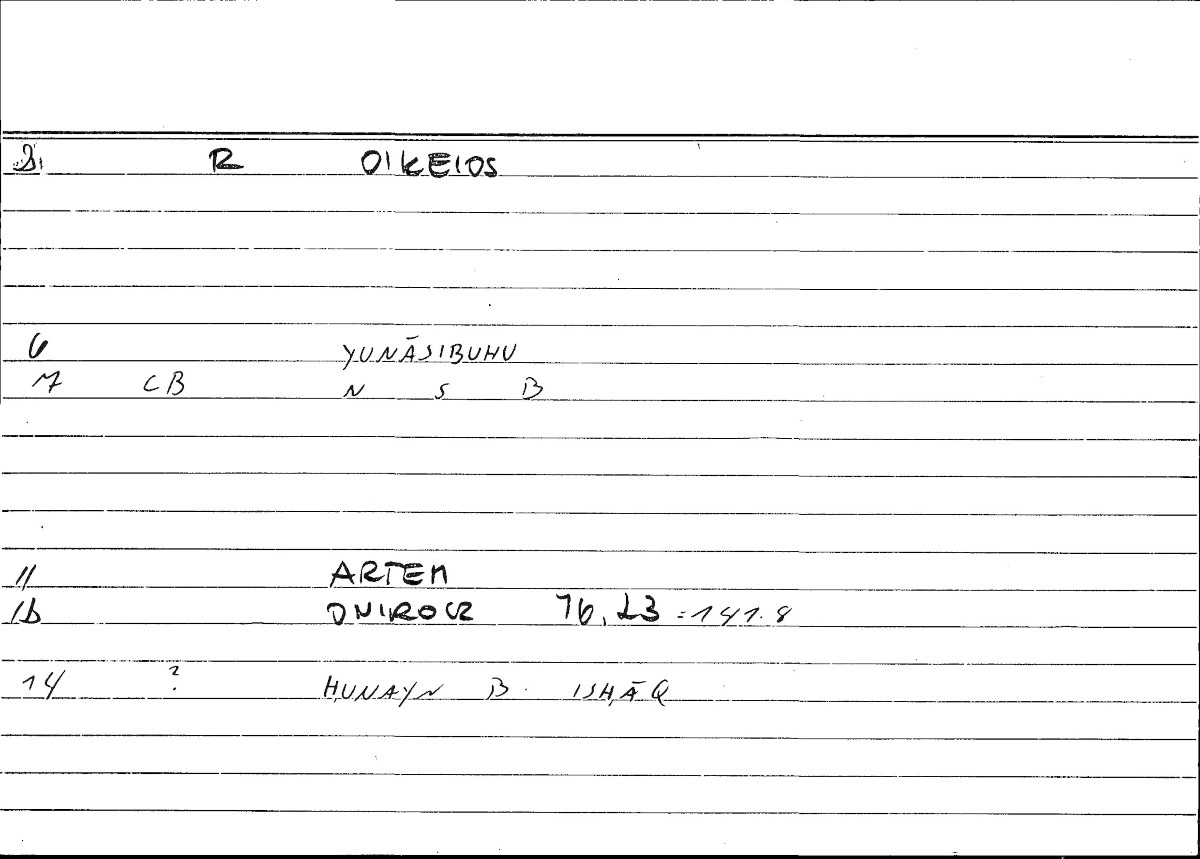 2 R OIKEIOS
6 YUNĀSIBUHU
7 CB N S B
11 ARTEM
1b ONIROCR 76,23 =141.8
14 ? ḤUNAYN B. ISḤĀQ